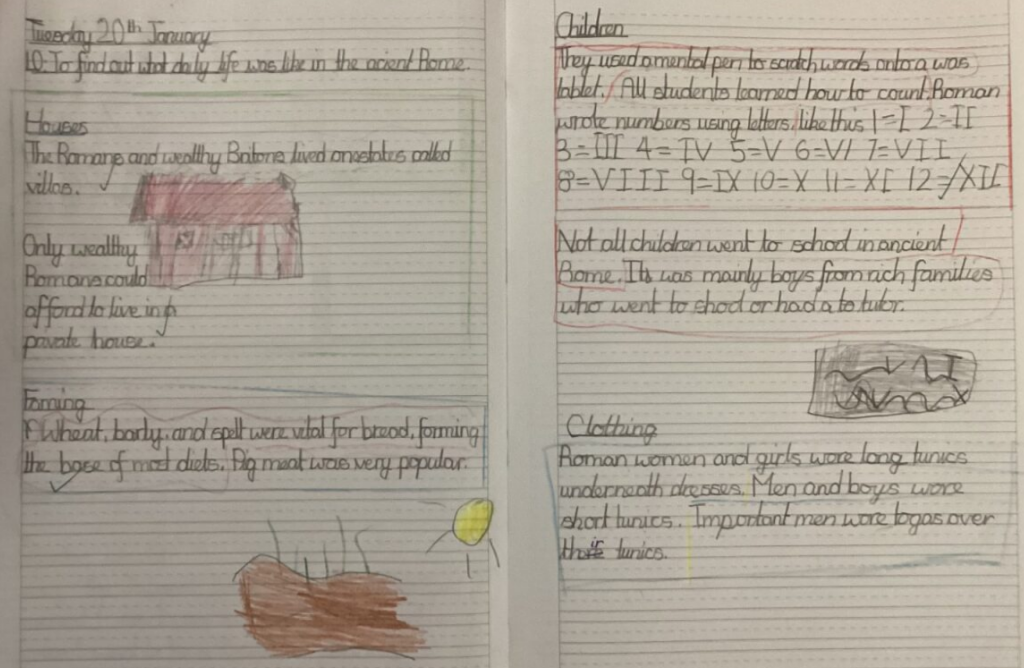 Tuesday 20th January
LO: To find out what daily life was like in the acient Rome.
Houses
The Romans and wealthy Britons lived on estates called
villas.
Only wealthy
Romans could
afford to live in a
private house.
Farming
Wheat, barly, and spelt were vital for bread, forming
the base of most diets. Pig meat was very popular.
Children
They used a mental pen to scatch words onto a was
tablet. All students learned how to count. Roman
wrote numbers using letters, like this 1=I 2=II
3=III 4=IV 5=V 6=VI 7=VII
8=VIII 9=IX 10=X 11=XI 12=XII
Not all children went to school in ancient
Rome. Its was mainly boys from rich families
who went to shool or had a to tutor.
Clothing
Roman women and girls wore long tunics
underneath dresses. Men and boys wore
short tunics. Important men wore togas over
their tunics.